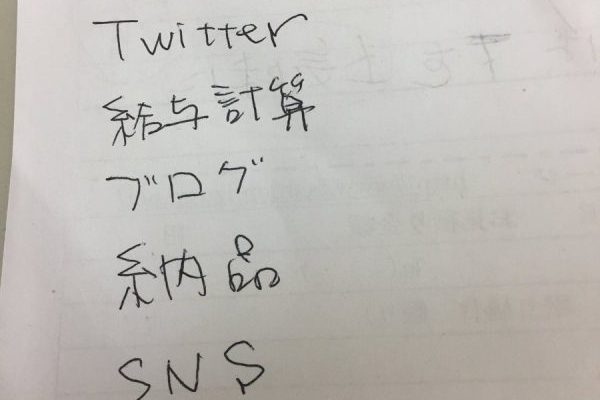 Twitter
給与計算
ブログ
納品
SNS